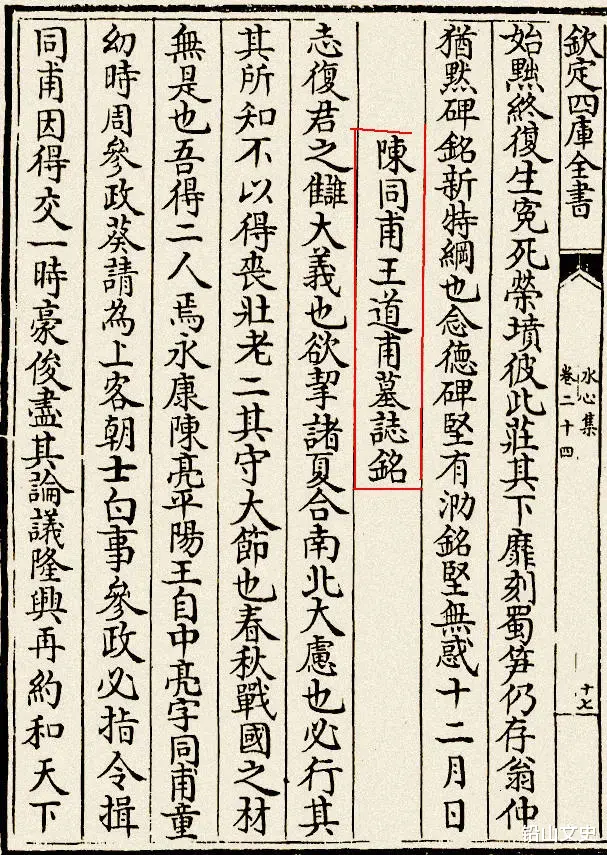 欽定四庫全書
水心集
卷二十四
十七
始黙終復生寃死榮墳彼此莊其下靡刻蜀笋仍存翁仲
猶黙碑銘新特綱也念德碑堅有泐銘堅無惑十二月日
陳同甫王道甫墓誌銘
志復君之讎大義也欲挈諸夏合南北大慮也必行其
其所知不以得喪壯老二其守大節也春秋戰國之材
無是也吾得二人焉永康陳亮平陽王自中亮字同甫童
幼時周參政葵請為上客朝士白事參政必指令揖
同甫因得交一時豪俊盡其論議隆興再約和天下
铅山文史